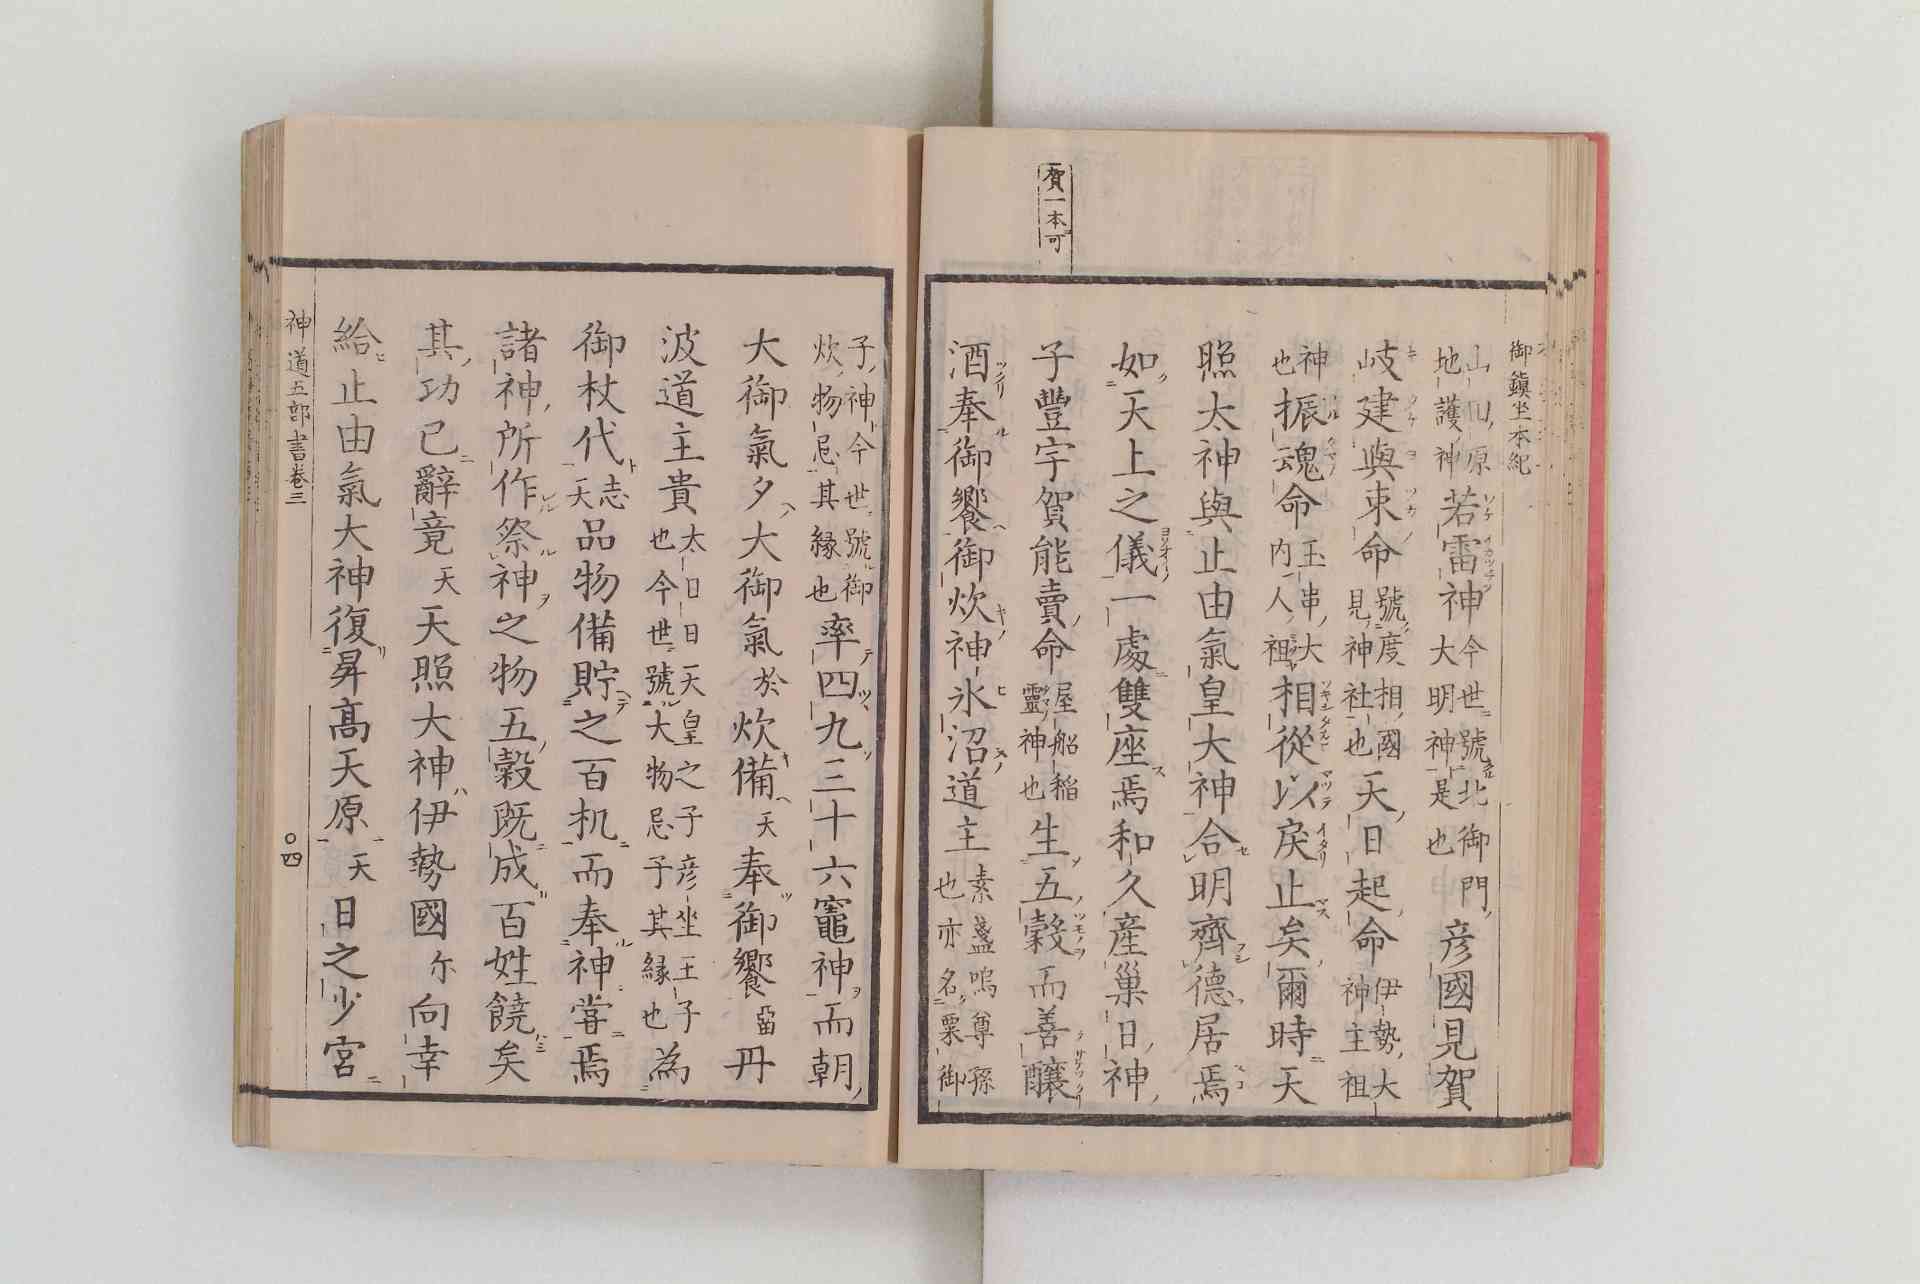 御鎮坐本紀
賀一本可
山田原地護神若雷神今世號北御門大明神是也彦國見賀
岐建與束命號度相國見神社也天日起命伊勢大神主祖
神也振魂命玉串大内人祖相從以戾止矣爾時天
照太神與止由氣皇大神合明齊德居焉
如天上之儀一處雙座焉和久産巢日神
子豐宇賀能賣命屋船稲靈神也生五穀而善釀
酒奉御饗御炊神氷沼道主素盞嗚尊孫也亦名粟御
子神今世號御炊物忌其縁也率四九三十六竈神而朝
大御氣夕大御氣於炊備天奉御饗留丹
波道主貴太日日天皇之子彦坐王子也今世號大物忌子其縁也為
御杖代志天品物備貯之百机而奉神甞焉
諸神所作祭神之物五穀既成百姓饒矣
其功已辭竟天天照大神伊勢國尓向幸
給止由氣大神復昇高天原天日之少宮
神道五部書卷三
○四